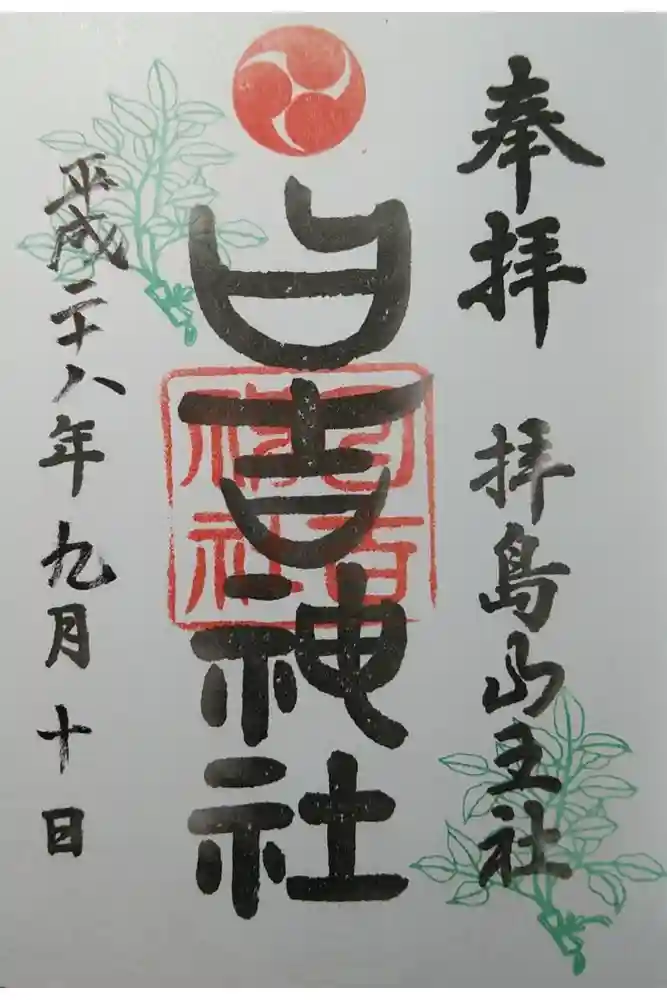 奉拝 拝島山王社
日吉神社
日吉
神社
平成二十八年九月十日